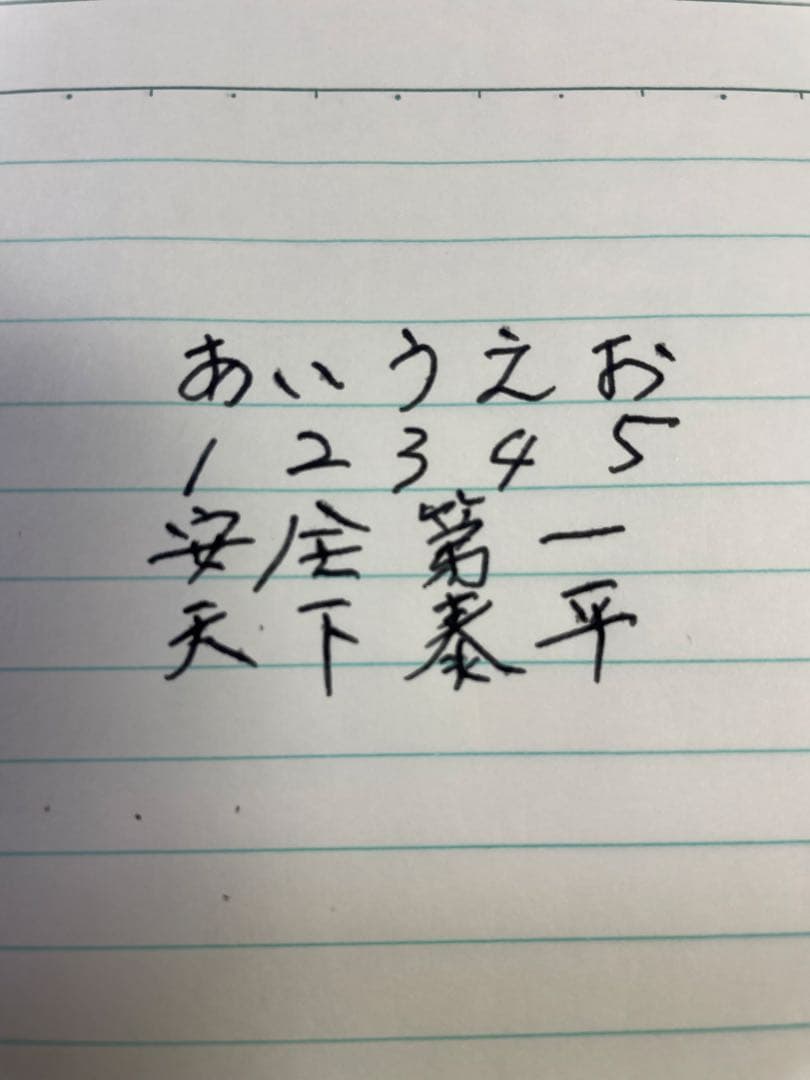 あいうえお
1 2 3 4 5
安全第一
天下泰平